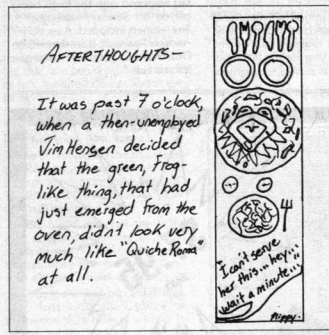 AFTERTHOUGHTS—
It was past 7 o'clock,
when a then-unemployed
Jim Hensen decided
that the green, frog-
like thing, that had
just emerged from the
oven, didn't look very
much like "Quiche Roma"
at all.
"I can't serve
her this... hey...
wait a minute..."
Hippy.